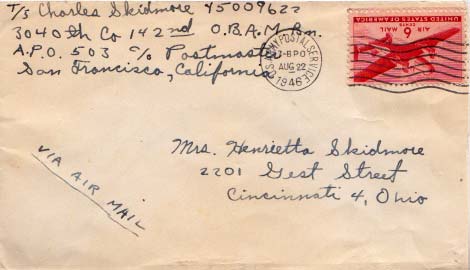 T/5 Charles Skidmore 45009622
3040th Co 142nd O.B.A.M. Bn.
A.P.O. 503 c/o Postmaster
San Francisco, California
U.S. ARMY POSTAL SERVICE
A.P.O.
AUG 22
1946
UNITED STATES OF AMERICA
6 CENTS
AIR MAIL
VIA AIR MAIL
Mrs. Henrietta Skidmore
2201 Gest Street
Cincinnati 4, Ohio